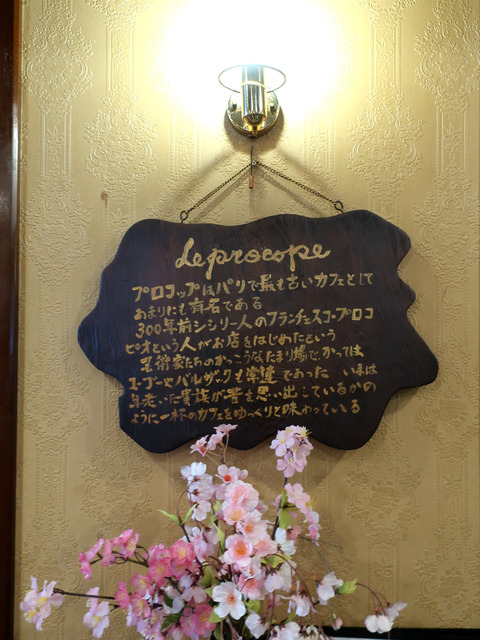 Leprocope
プロコップはパリで最も古いカフェとして
あまりにも有名である
300年前シシリー人のフランチェスコ・プロコ
ピオという人がお店をはじめたという
芸術家たちのかっこうなたまり場で、かっては
ユーゴーやバルザックも常連であった いまは
年老いた貴族が昔を思い出しているかの
ように一杯のカフェをゆっくりと味わっている